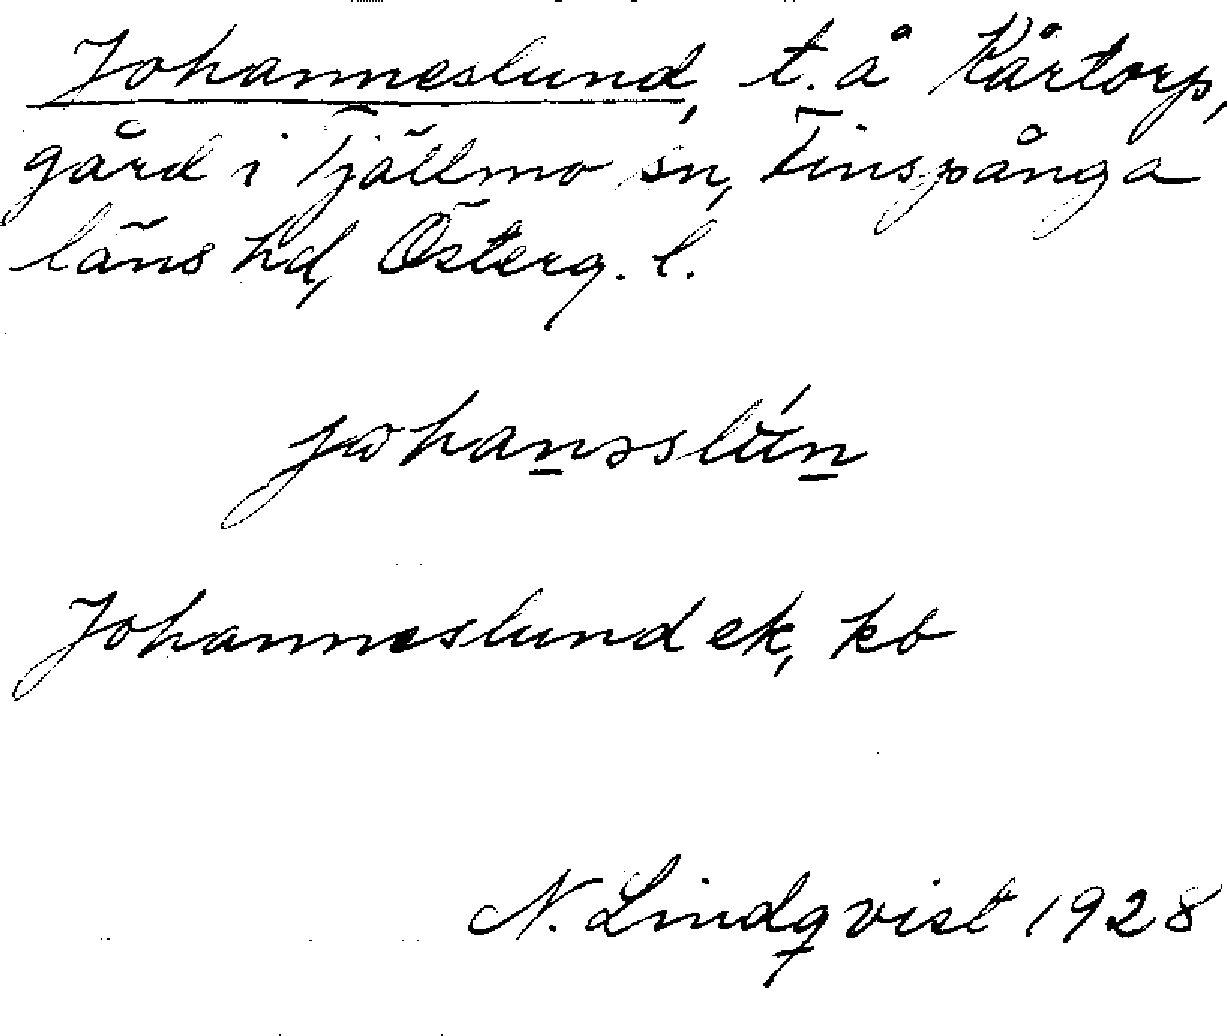 Johanneslund, t. å Kårtorp,
gård i Tjällmo sn, Finspånga
läns hd, Österg. l.
johanəslún
Johanneslund ek, kb
N. Lindqvist 1928